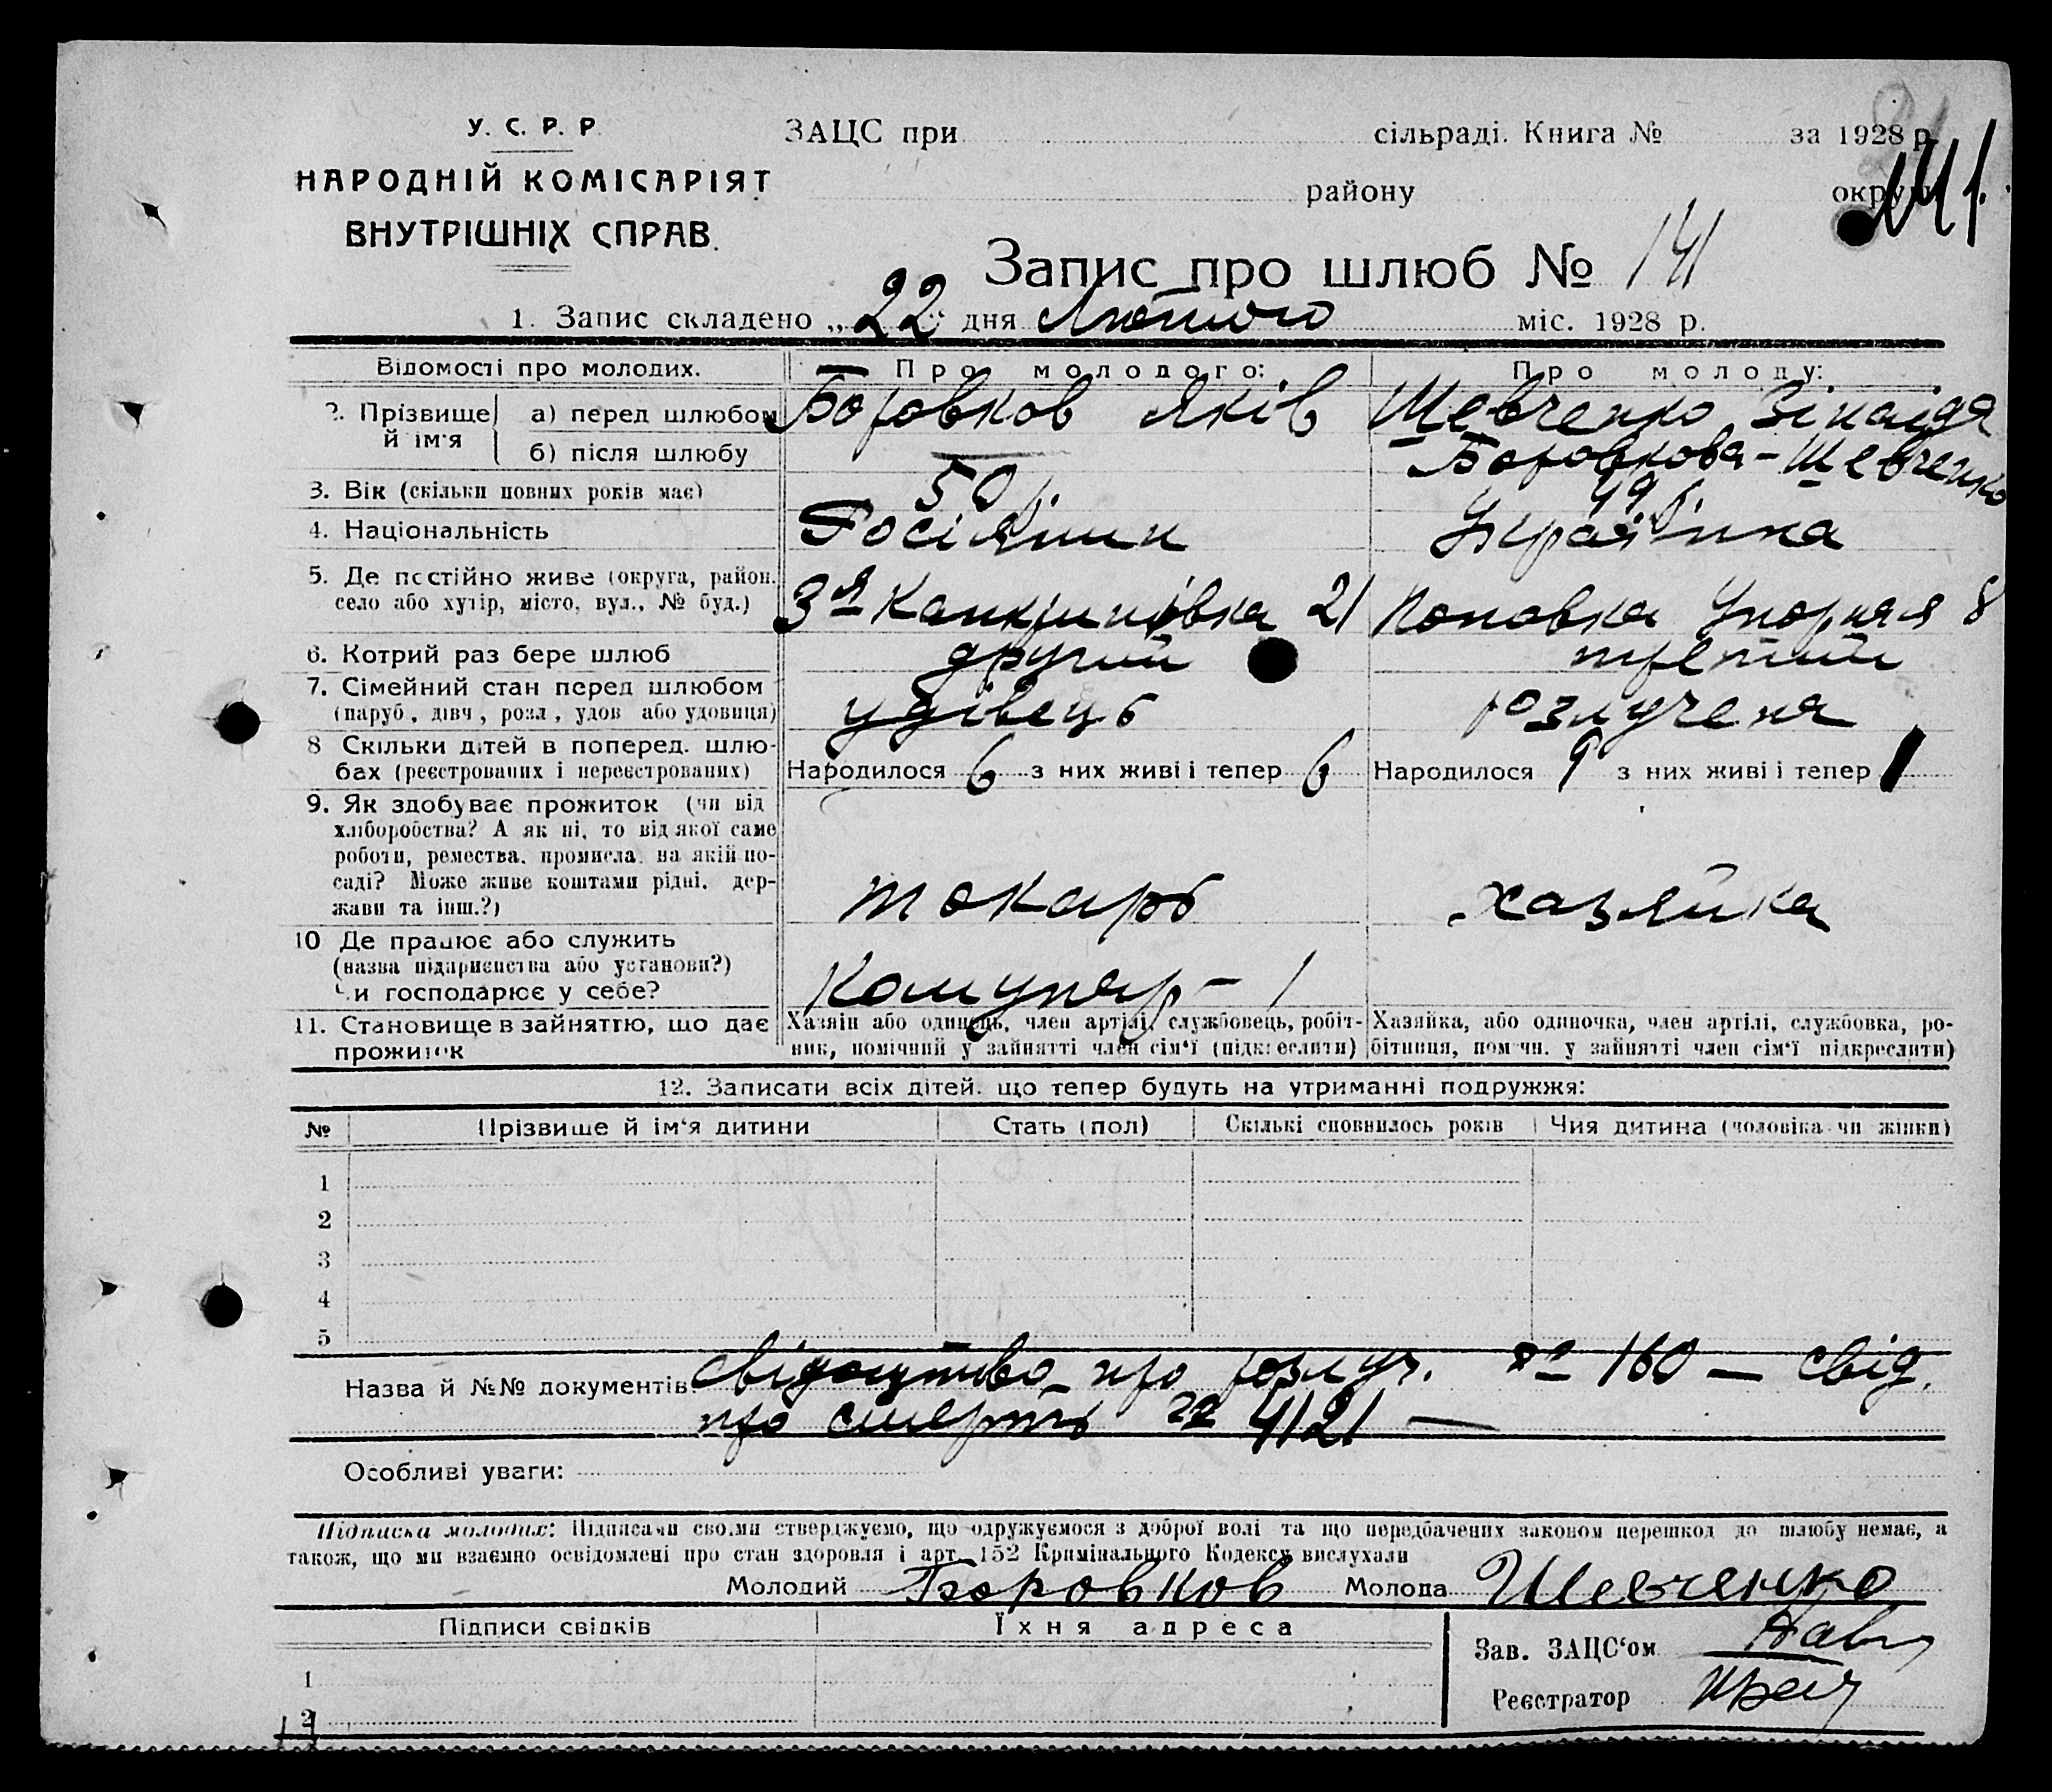 У. С. Р. Р.
НАРОДНІЙ КОМІСАРІЯТ
ВНУТРІШНІХ СПРАВ.
ЗАЦС при сільраді. Книга № за 1928 р.
району округи
141.
Запис про шлюб № 141
1. Запис складено „22" дня Лютого міс. 1928 р.
Відомості про молодих. Про молодого: Про молоду:
2. Прізвище й ім'я а) перед шлюбом Боровков Яків Шевченко Зінаїда
б) після шлюбу — Боровкова-Шевченко
3. Вік (скільки повних років має) 50 р. 49 р.
4. Національність Росіянин Українка
5. Де постійно живе (округа, район, село або хутір, місто, вул., № буд.) 3я Канкринівка 21 Поповка Упорная 8
6. Котрий раз бере шлюб другий третий
7. Сімейний стан перед шлюбом (паруб., дівч., розл., удов. або удовиця) удівець розлучена
8 Скільки дітей в поперед. шлюбах (реєстрованих і нереєстрованих) Народилося 6 з них живі і тепер 6 Народилося 9 з них живі і тепер 1
9. Як здобуває прожиток (чи від хліборобства? А як ні, то від якої саме роботи, ремества, промисла, на якій посаді? Може живе коштами рідні, держави та інш.?) токарь хазяйка
10 Де працює або служить (назва підприємства або установи?) Чи господарює у себе? Комунар - 1
11. Становище в зайняттю, що дає прожиток Хазяін або одинець, член артілі, службовець, робітник, помічний у зайнятті член сім'ї (підкреслити) Хазяйка, або одиночка, член артілі, службовка, робітниця, помічн. у зайнятті член сім'ї підкреслити)
12. Записати всіх дітей, що тепер будуть на утриманні подружжя:
№ Прізвище й ім'я дитини Стать (пол) Скількі сповнилось років Чия дитина (чоловіка чи жінки)
1
2
3
4
5
Назва й №№ документів: свідоцтво про розлуч. № 160 — свід.
про смерть № 4121 —
Особливі уваги:
Підписка молодих: Підписами своїми стверджуємо, що одружуємося з доброї волі та що передбачених законом перешкод до шлюбу немає, а
також, що ми взаємно освідомлені про стан здоровля і арт. 152 Кримінального Кодексу вислухали
Молодий Боровков Молода Шевченко
Підписи свідків Їхня адреса
Зав. ЗАЦС'ом
1
Реєстратор
2